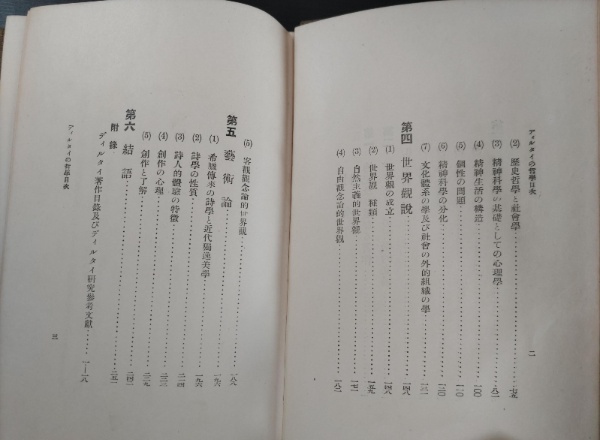 ディルタイの哲學目次
(2) 歷史哲學と社會學
(3) 精神科學の基礎としての心理學
(4) 精神生活の構造
(5) 個性の問題
(6) 精神科學の分化
(7) 文化體系の學及び社會の外的組織の學
第四 世界觀說
(1) 世界觀の成立
(2) 世界觀の種類
(3) 自然主義的世界觀
(4) 自由觀念論的世界觀
二
(5) 客觀觀念論的世界觀
第五 藝術論
(1) 希臘傳來の詩學と近代獨逸美學
(2) 詩學の性質
(3) 詩人的體驗の特徵
(4) 創作の心理
(5) 創作と了解
第六 結語
附錄
ディルタイ著作目錄及びディルタイ研究參考文獻 一—一八
ディルタイの哲學目次
三